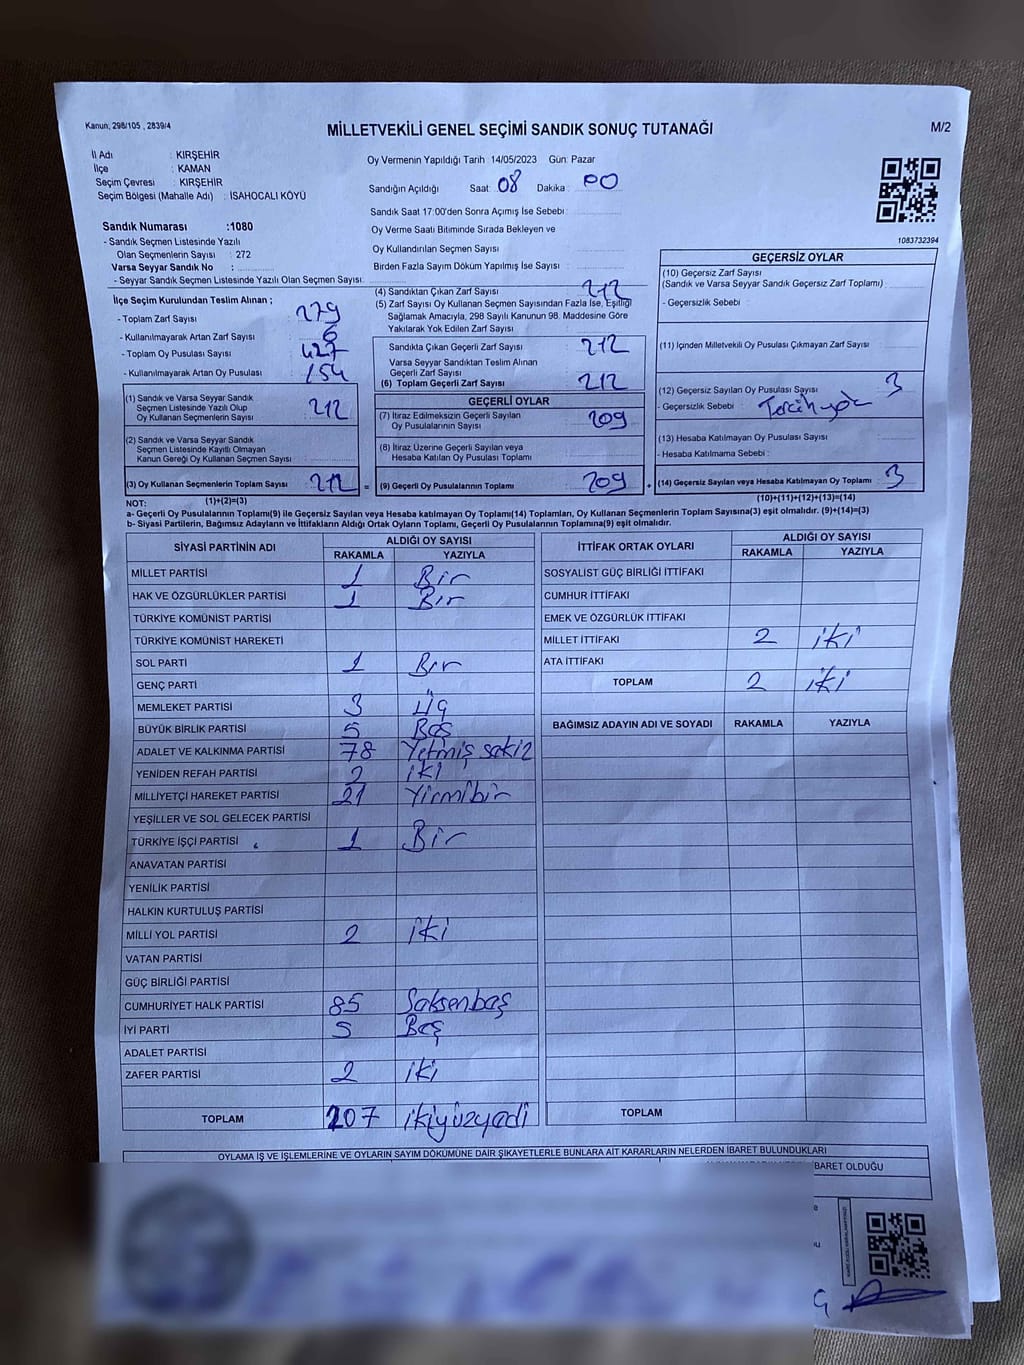 Kanun; 298/105 , 2839/4
MİLLETVEKİLİ GENEL SEÇİMİ SANDIK SONUÇ TUTANAĞI
M/2
İl Adı : KIRŞEHİR
İlçe : KAMAN
Seçim Çevresi : KIRŞEHİR
Seçim Bölgesi (Mahalle Adı) : İSAHOCALI KÖYÜ
Oy Vermenin Yapıldığı Tarih : 14/05/2023 Gün: Pazar
Sandığın Açıldığı Saat: 08 Dakika : 00
Sandık Saat 17:00'den Sonra Açımış İse Sebebi :
Oy Verme Saati Bitiminde Sırada Bekleyen ve
Oy Kullandırılan Seçmen Sayısı
Birden Fazla Sayım Döküm Yapılmış İse Sayısı :
1083732394
Sandık Numarası :1080
- Sandık Seçmen Listesinde Yazılı
Olan Seçmenlerin Sayısı : 272
Varsa Seyyar Sandık No :
- Seyyar Sandık Seçmen Listesinde Yazılı Olan Seçmen Sayısı:
İlçe Seçim Kurulundan Teslim Alınan ;
- Toplam Zarf Sayısı : 279
- Kullanılmayarak Artan Zarf Sayısı : 6
- Toplam Oy Pusulası Sayısı : 427
- Kullanılmayarak Artan Oy Pusulası : 154
(1) Sandık ve Varsa Seyyar Sandık
Seçmen Listesinde Yazılı Olup
Oy Kullanan Seçmenlerin Sayısı : 212
(2) Sandık ve Varsa Seyyar Sandık
Seçmen Listesinde Kayıtlı Olmayan
Kanun Gereği Oy Kullanan Seçmen Sayısı :
(3) Oy Kullanan Seçmenlerin Toplam Sayısı : 212
(1)+(2)=(3)
(4) Sandıktan Çıkan Zarf Sayısı : 212
(5) Zarf Sayısı Oy Kullanan Seçmen Sayısından Fazla İse, Eşitliği
Sağlamak Amacıyla, 298 Sayılı Kanunun 98. Maddesine Göre
Yakılarak Yok Edilen Zarf Sayısı :
Sandıkta Çıkan Geçerli Zarf Sayısı : 212
Varsa Seyyar Sandıktan Teslim Alınan
Geçerli Zarf Sayısı :
(6) Toplam Geçerli Zarf Sayısı : 212
GEÇERLİ OYLAR
(7) İtiraz Edilmeksizin Geçerli Sayılan
Oy Pusulalarının Sayısı : 209
(8) İtiraz Üzerine Geçerli Sayılan veya
Hesaba Katılan Oy Pusulası Toplamı :
(9) Geçerli Oy Pusulalarının Toplamı : 209
GEÇERSİZ OYLAR
(10) Geçersiz Zarf Sayısı
(Sandık ve Varsa Seyyar Sandık Geçersiz Zarf Toplamı) :
- Geçersizlik Sebebi :
(11) İçinden Milletvekili Oy Pusulası Çıkmayan Zarf Sayısı :
(12) Geçersiz Sayılan Oy Pusulası Sayısı : 3
- Geçersizlik Sebebi : Tercih yok
(13) Hesaba Katılmayan Oy Pusulası Sayısı :
- Hesaba Katılmama Sebebi :
(14) Geçersiz Sayılan veya Hesaba Katılmayan Oy Toplamı : 3
(10)+(11)+(12)+(13)=(14)
NOT:
a- Geçerli Oy Pusulalarının Toplamı(9) ile Geçersiz Sayılan veya Hesaba katılmayan Oy Toplamı(14) Toplamları, Oy Kullanan Seçmenlerin Toplam Sayısına(3) eşit olmalıdır. (9)+(14)=(3)
b- Siyasi Partilerin, Bağımsız Adayların ve İttifakların Aldığı Ortak Oyların Toplamı, Geçerli Oy Pusulalarının Toplamına(9) eşit olmalıdır.
SİYASİ PARTİNİN ADI ALDIĞI OY SAYISI
RAKAMLA YAZIYLA
MİLLET PARTİSİ 1 Bir
HAK VE ÖZGÜRLÜKLER PARTİSİ 1 Bir
TÜRKİYE KOMÜNİST PARTİSİ
TÜRKİYE KOMÜNİST HAREKETİ
SOL PARTİ 1 Bir
GENÇ PARTİ
MEMLEKET PARTİSİ 3 Üç
BÜYÜK BİRLİK PARTİSİ 5 Beş
ADALET VE KALKINMA PARTİSİ 78 Yetmiş sekiz
YENİDEN REFAH PARTİSİ 2 iki
MİLLİYETÇİ HAREKET PARTİSİ 21 Yirmibir
YEŞİLLER VE SOL GELECEK PARTİSİ
TÜRKİYE İŞÇİ PARTİSİ 1 Bir
ANAVATAN PARTİSİ
YENİLİK PARTİSİ
HALKIN KURTULUŞ PARTİSİ
MİLLİ YOL PARTİSİ 2 iki
VATAN PARTİSİ
GÜÇ BİRLİĞİ PARTİSİ
CUMHURİYET HALK PARTİSİ 85 Seksenbeş
İYİ PARTİ 5 Beş
ADALET PARTİSİ
ZAFER PARTİSİ 2 iki
TOPLAM 207 ikiyüzyedi
İTTİFAK ORTAK OYLARI ALDIĞI OY SAYISI
RAKAMLA YAZIYLA
SOSYALİST GÜÇ BİRLİĞİ İTTİFAKI
CUMHUR İTTİFAKI
EMEK VE ÖZGÜRLÜK İTTİFAKI
MİLLET İTTİFAKI 2 iki
ATA İTTİFAKI
TOPLAM 2 iki
BAĞIMSIZ ADAYIN ADI VE SOYADI RAKAMLA YAZIYLA
TOPLAM
OYLAMA İŞ VE İŞLEMLERİNE VE OYLARIN SAYIM DÖKÜMÜNE DAİR ŞİKAYETLERLE BUNLARA AİT KARARLARIN NELERDEN İBARET BULUNDUKLARI
BARET OLDUĞU